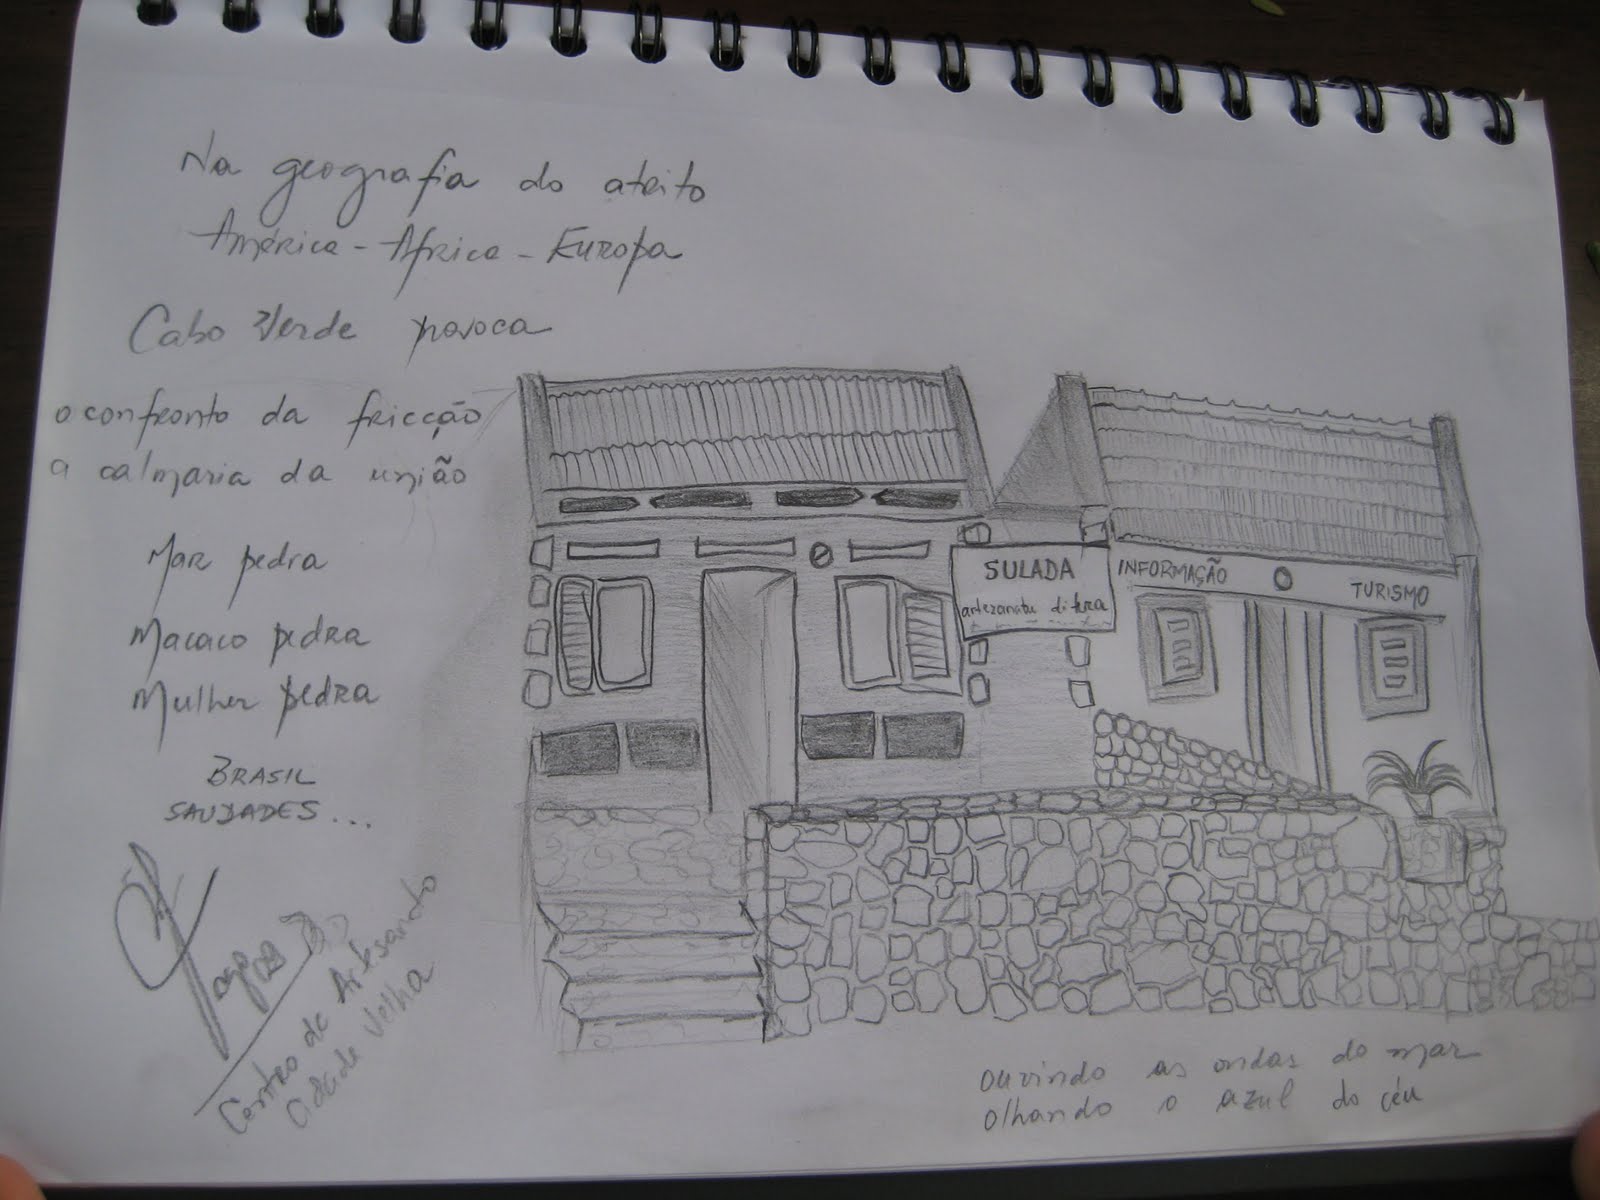 Na geografia do atrito
América - Africa - Europa
Cabo Verde provoca
o confronto da fricção
a calmaria da união
Mar pedra
Macaco pedra
Mulher pedra
BRASIL
SAUDADES...
ago 09
Centro de Artesanato
Cidade Velha
SULADA
artezanatu di tera
INFORMAÇÃO
TURISMO
ouvindo as ondas do mar
olhando o azul do céu